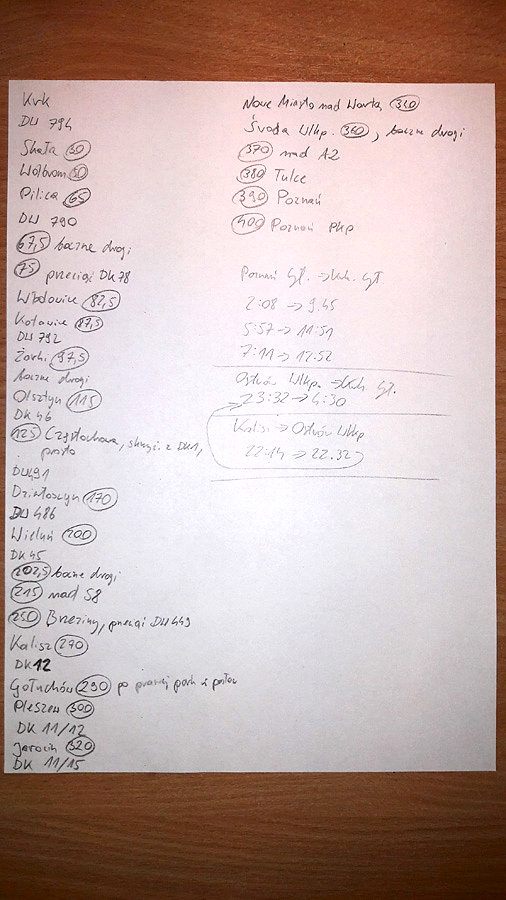 KrK
DW 794
Skała 30
Wolbrom 50
Pilica 65
DW 790
67,5 boczne drogi
75 przeciąć DK78
Włodowice 82,5
Kotowice 87,5
DW 792
Żarki 97,5
boczne drogi
Olsztyn 115
DK 46
125 Częstochowa, skrzyż. z DK1,
prosto
DW491
Działoszyn 170
DW 486
Wieluń 200
DK45
202,5 boczne drogi
215 nad S8
250 Brzeziny, przeciąć DW449
Kalisz 270
DK12
Gołuchów 290 po prawej park i pałac
Pleszew 300
DK 11/12
Jarocin 320
DK 11/15
Nowe Miasto nad Wartą 340
Środa Wlkp. 360, boczne drogi
370 nad A2
380 Tulce
390 Poznań
400 Poznań PKP
Poznań Gł. → Krk. Gł
2:08 → 9.45
5:57 → 11:51
7:11 → 12:52
Ostrów Wlkp. → Krk Gł.
23:32 → 4:30
Kalisz → Ostrów Wlkp
22:14 → 22.32